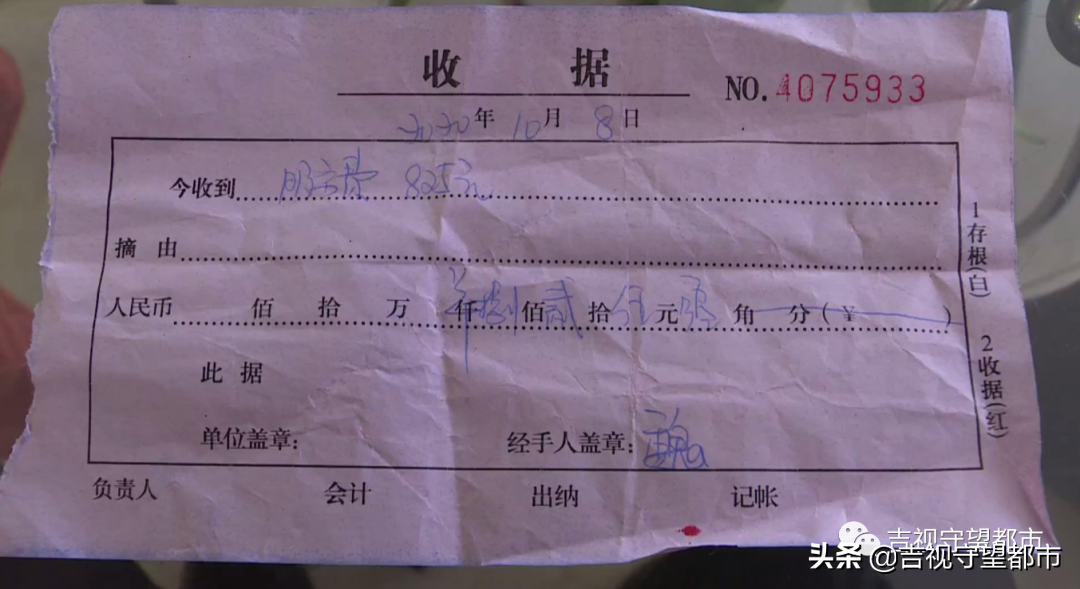 收 据
NO.4075933
2020年 10月 8日
今收到 825元
摘 由
人民币 佰 拾 万 仟捌佰贰拾伍元零角 分(¥ )
此 据
单位盖章: 经手人盖章:
负责人 会计 出纳 记帐
1存根(白)
2收据(红)
吉视守望都市
头条 @吉视守望都市